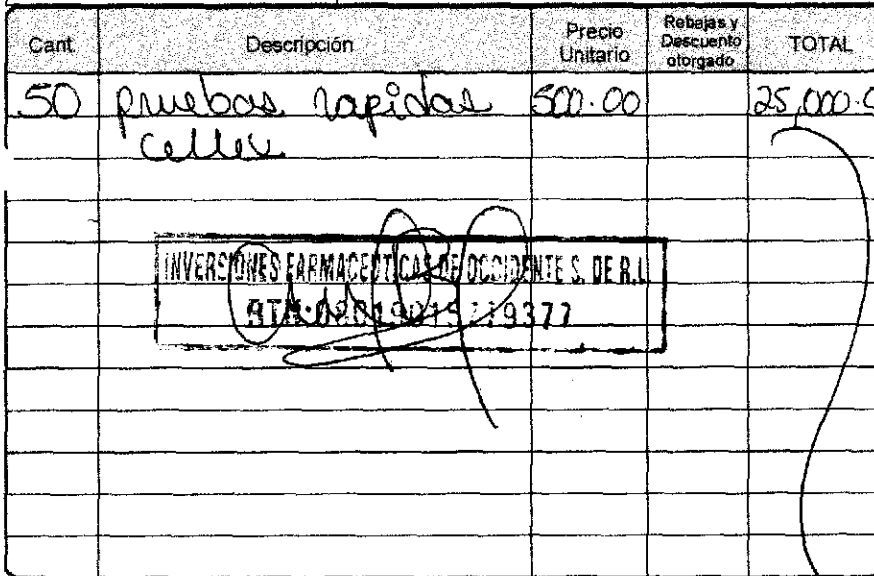 Cant. Descripción Precio Unitario Rebajas y Descuento otorgado TOTAL
50 pruebas rapidas 500.00 25,000.0
Cellex
INVERSIONES FARMACEUTICAS DE OCCIDENTE S. DE R.L.
RTN: